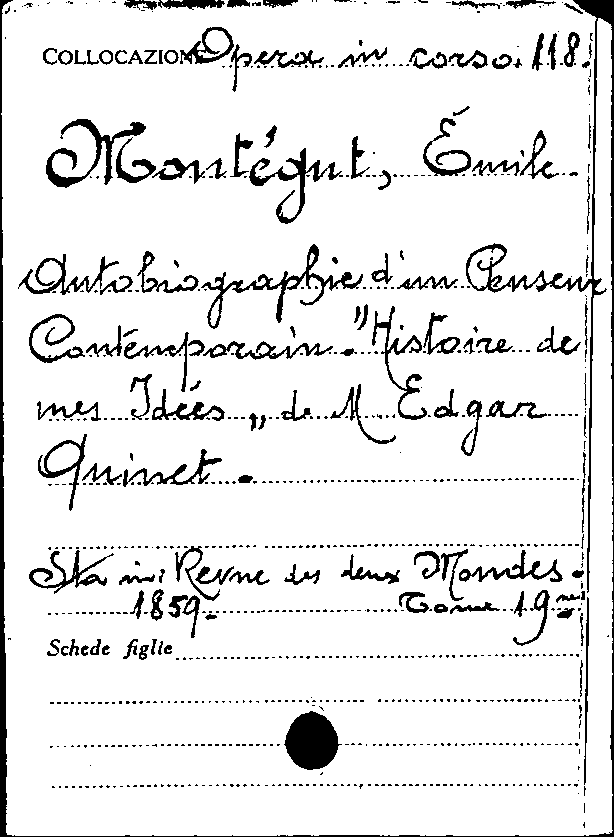 COLLOCAZIONE Opera in corso. 118.
Montégut, Émile.
Autobiographie d'un Penseur
Contemporain. "Histoire de
mes Idées „ de M. Edgar
Quinet.
Sta in: Revue des deux Mondes.
1859. Tome 19me
Schede figlie